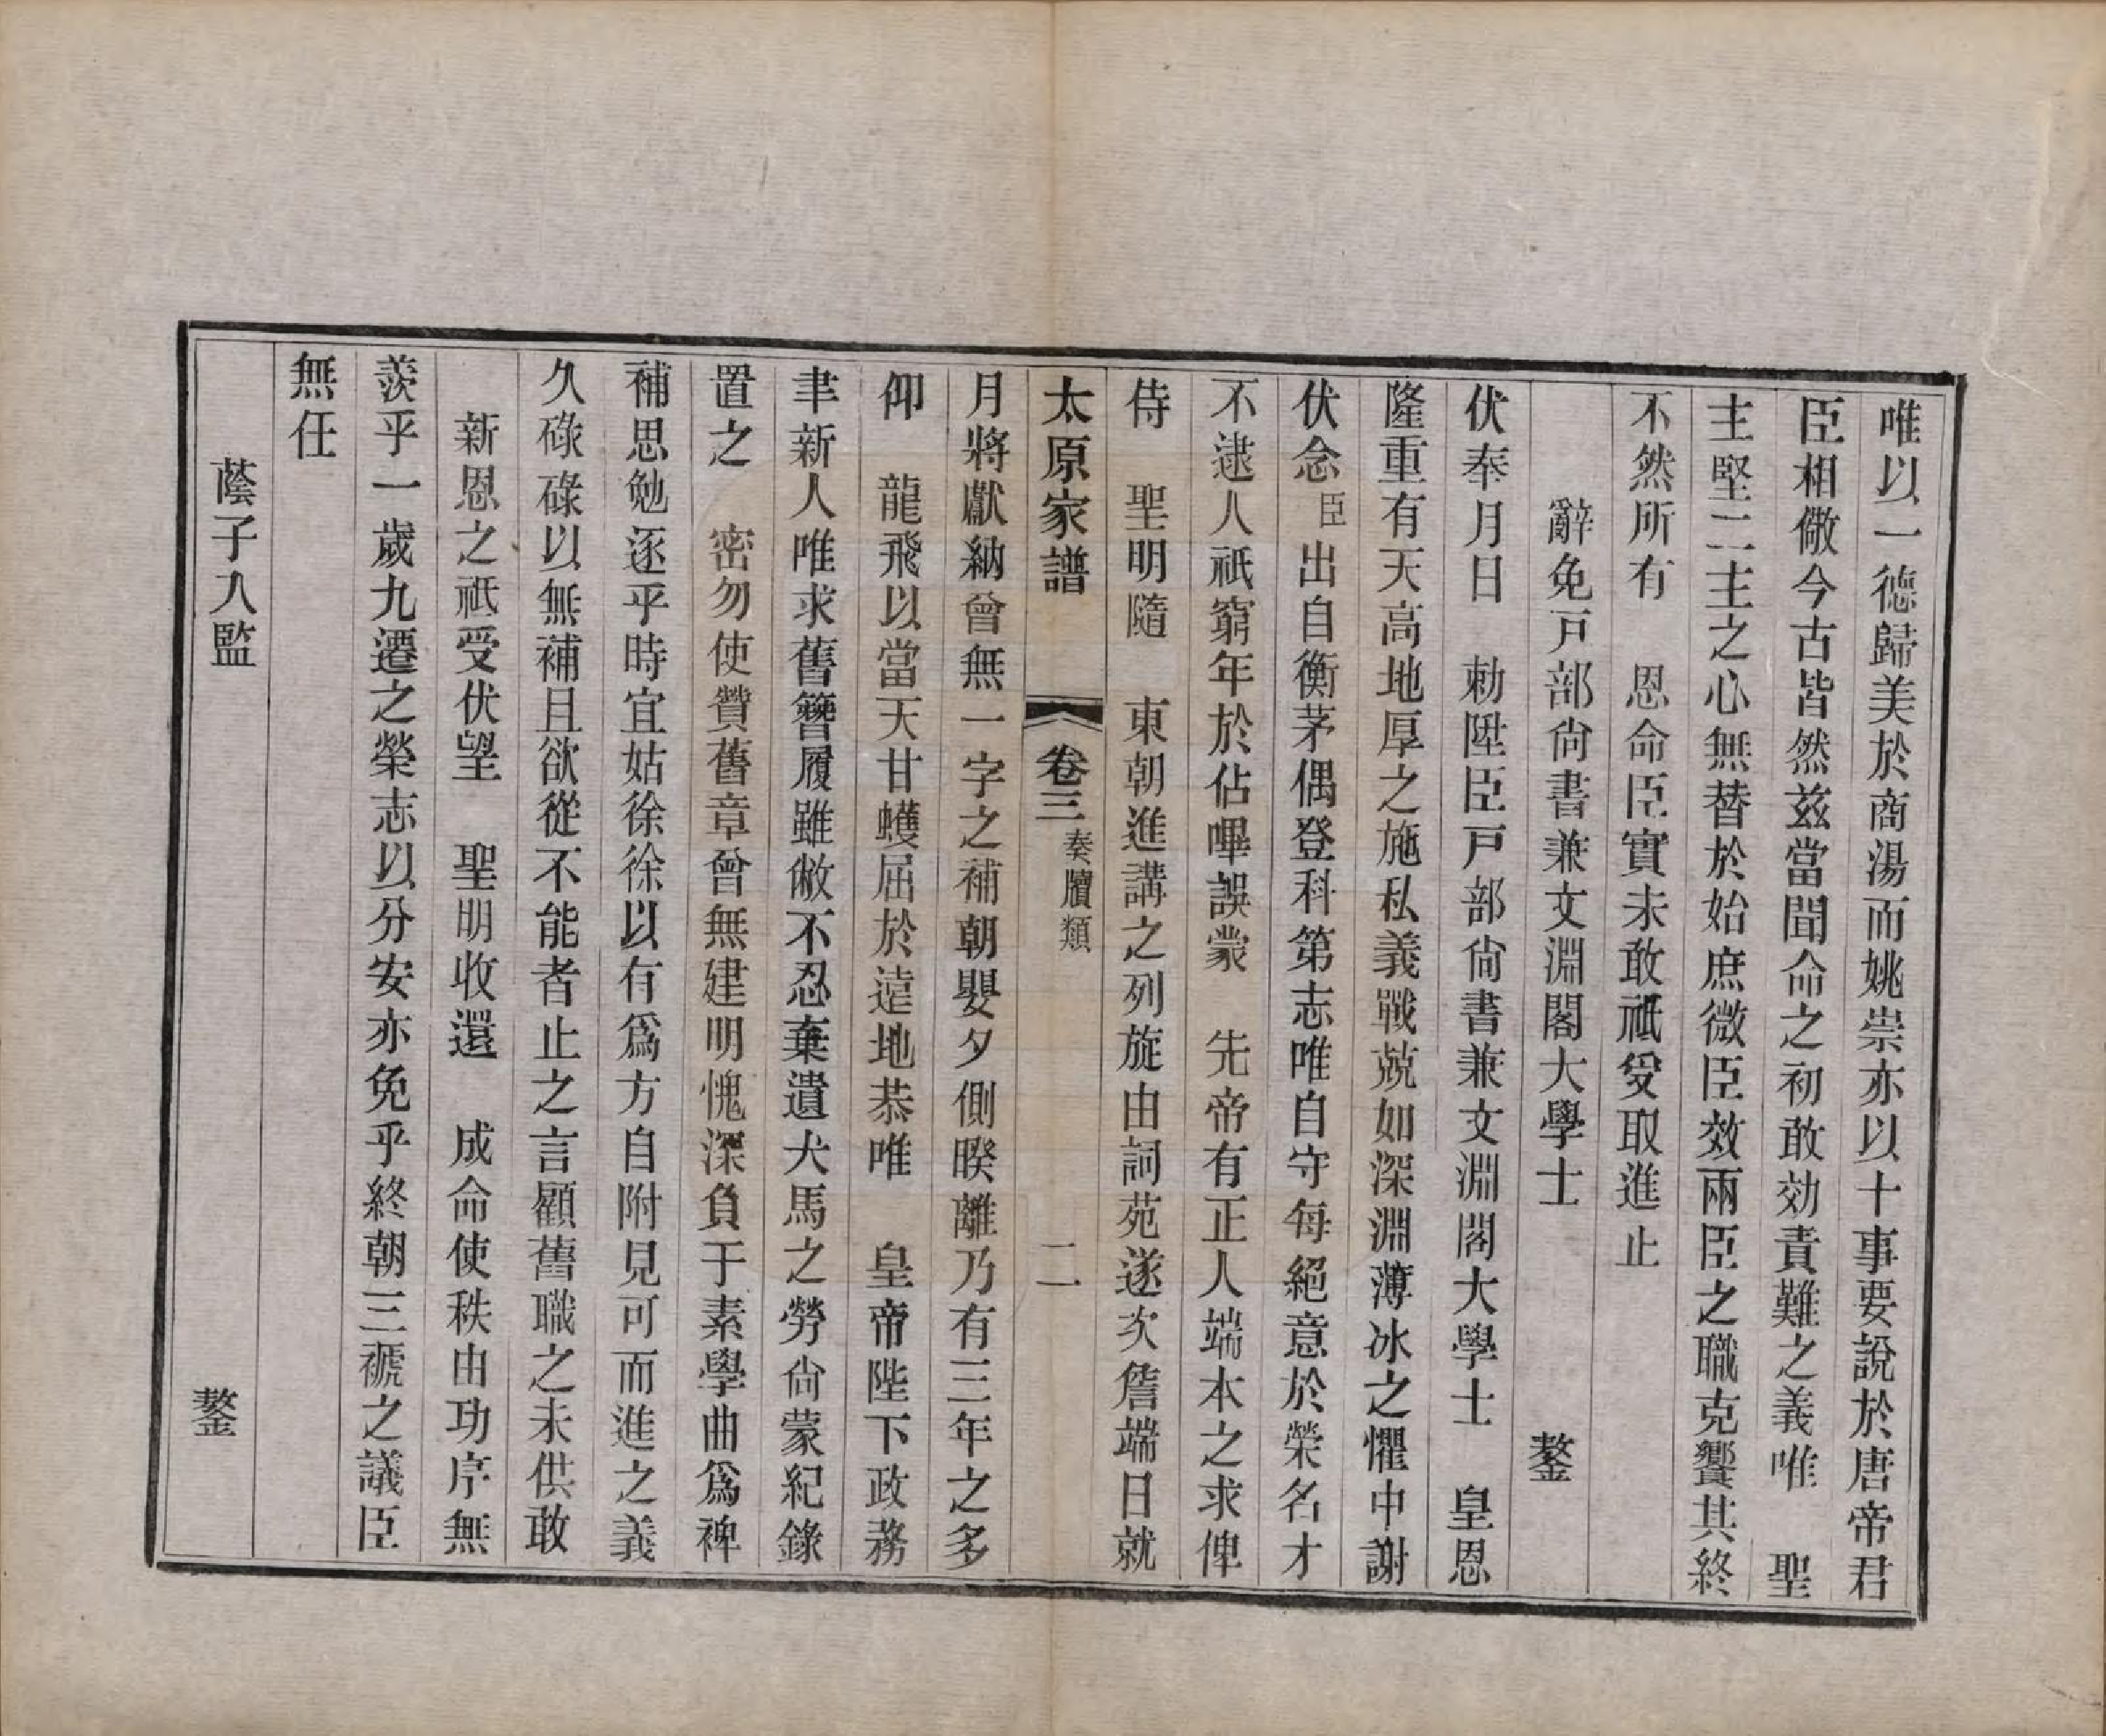 唯以一德歸美於商湯而姚崇亦以十事要說於唐帝君
臣相儆今古皆然兹當聞命之初敢効責難之義唯　聖
主堅二主之心無替於始庶微臣效兩臣之職克饗其終
不然所有　恩命臣實未敢祗受取進止
辭免戸部尙書兼文淵閣大學士　鏊
伏奉月日　勅陞臣戸部尙書兼文淵閣大學士　皇恩
隆重有天高地厚之施私義戰兢如深淵薄冰之懼中謝
伏念臣出自衡茅偶登科第志唯自守每絕意於榮名才
不逮人祇窮年於佔嗶誤蒙　先帝有正人端本之求俾
侍　聖明隨　東朝進講之列旋由詞苑遂次詹端日就
太原家譜　卷三　奏牘類　二
月將獻納曾無一字之補朝嬰夕側暌離乃有三年之多
仰　龍飛以當天甘蠖屈於遠地恭唯　皇帝陛下政務
聿新人唯求舊簪履雖敝不忍棄遺犬馬之勞尙蒙紀錄
置之　密勿使贊舊章曾無建明愧深負于素學曲爲裨
補思勉逐乎時宜姑徐徐以有爲方自附見可而進之義
久碌碌以無補且欲從不能者止之言顧舊職之未供敢
新恩之祗受伏望　聖明收還　成命使秩由功序無
羨乎一歲九遷之榮志以分安亦免乎終朝三褫之議臣
無任
蔭子入監　鏊